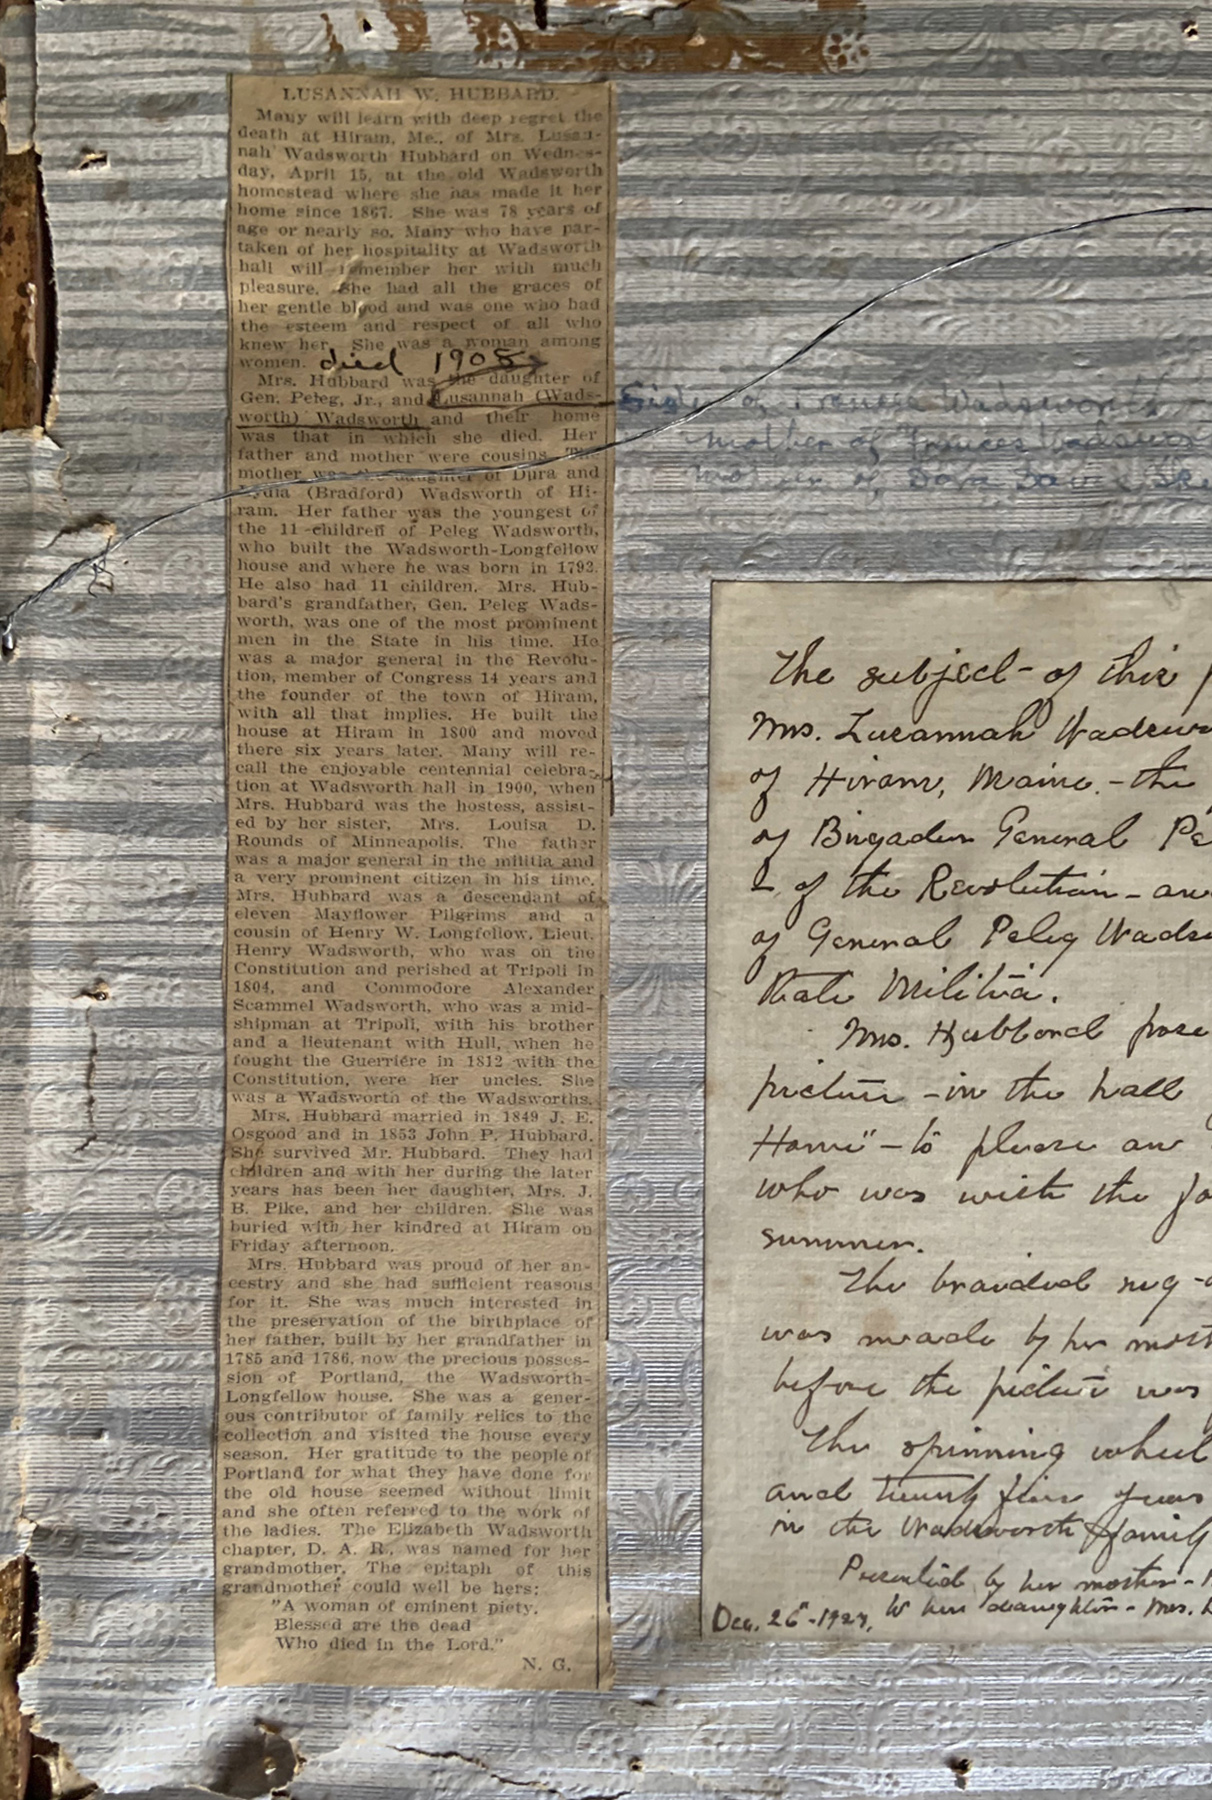 LUSANNAH W. HUBBARD.
Many will learn with deep regret the
death at Hiram, Me., of Mrs. Lusan-
nah Wadsworth Hubbard on Wednes-
day, April 15, at the old Wadsworth
homestead where she has made it her
home since 1867. She was 78 years of
age or nearly so. Many who have par-
taken of her hospitality at Wadsworth
hall will remember her with much
pleasure. She had all the graces of
her gentle blood and was one who had
the esteem and respect of all who
knew her. She was a woman among
women. died 1908
Mrs. Hubbard was the daughter of
Gen. Peleg, Jr., and Lusannah (Wads-
worth) Wadsworth and their home
was that in which she died. Her
father and mother were cousins. The
mother was the daughter of Dura and
Lydia (Bradford) Wadsworth of Hi-
ram. Her father was the youngest of
the 11 children of Peleg Wadsworth,
who built the Wadsworth-Longfellow
house and where he was born in 1793.
He also had 11 children. Mrs. Hub-
bard's grandfather, Gen. Peleg Wads-
worth, was one of the most prominent
men in the State in his time. He
was a major general in the Revolu-
tion, member of Congress 14 years and
the founder of the town of Hiram,
with all that implies. He built the
house at Hiram in 1800 and moved
there six years later. Many will re-
call the enjoyable centennial celebra-
tion at Wadsworth hall in 1900, when
Mrs. Hubbard was the hostess, assist-
ed by her sister, Mrs. Louisa D.
Rounds of Minneapolis. The father
was a major general in the militia and
a very prominent citizen in his time.
Mrs. Hubbard was a descendant of
eleven Mayflower Pilgrims and a
cousin of Henry W. Longfellow, Lieut.
Henry Wadsworth, who was on the
Constitution and perished at Tripoli in
1804, and Commodore Alexander
Scammel Wadsworth, who was a mid-
shipman at Tripoli, with his brother
and a lieutenant with Hull, when he
fought the Guerriére in 1812 with the
Constitution, were her uncles. She
was a Wadsworth of the Wadsworths.
Mrs. Hubbard married in 1849 J. E.
Osgood and in 1853 John P. Hubbard.
She survived Mr. Hubbard. They had
children and with her during the later
years has been her daughter, Mrs. J.
B. Pike, and her children. She was
buried with her kindred at Hiram on
Friday afternoon.
Mrs. Hubbard was proud of her an-
cestry and she had sufficient reasons
for it. She was much interested in
the preservation of the birthplace of
her father, built by her grandfather in
1785 and 1786, now the precious posses-
sion of Portland, the Wadsworth-
Longfellow house. She was a gener-
ous contributor of family relics to the
collection and visited the house every
season. Her gratitude to the people of
Portland for what they have done for
the old house seemed without limit
and she often referred to the work of
the ladies. The Elizabeth Wadsworth
chapter, D. A. R., was named for her
grandmother. The epitaph of this
grandmother could well be hers:
"A woman of eminent piety.
Blessed are the dead
Who died in the Lord."
N. G.
Sister of Wadsworth
mother of Frances Wadswor
mother of Davis
The subject - of this
Mrs. Lusannah Wadswo
of Hiram, Maine. - the
of Brigadier General Pe
- of the Revolution - an
of General Peleg Wadsw
State Militia.
Mrs. Hubbard pose
picture - in the hall
Home" - to please an
who was with the fa
summer.
The braided rug -
was made by her mot
before the picture was
The spinning wheel
and twenty five years
in the Wadsworth family
Presented by her mother -
Dec. 26" - 1927, to her daughter - Mrs.